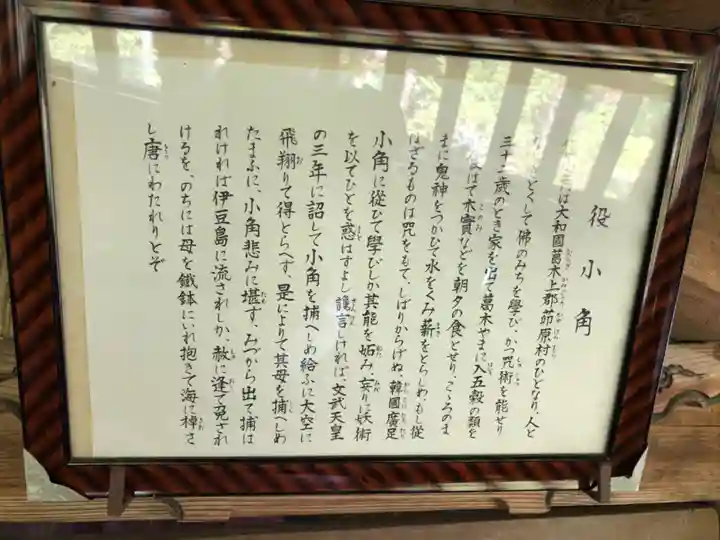 役小角
は大和國葛木上郡茆原村のひとなり、人と
どくして佛のみちを學び、かつ咒術を能せり
三十二歳のとき家を出て葛木やまに入五穀の類を
はて木實などを朝夕の食とせり、こゝろのま
まに鬼神をつかひて水をくみ薪をとらしめ、もし從
はざるものは咒をもて、しばりからげぬ、韓國廣足
小角に從ひて學びしか其能を妬み、妄りに妖術
を以てひとを惑はすよし讒言しければ、文武天皇
の三年に詔して小角を捕へしめ給ふに大空に
飛翔りて得とらへす、是によりて其母を捕へしめ
たまふに、小角悲みに堪す、みつから出て捕は
れければ伊豆島に流されしか、赦に逢て免され
けるを、のちには母を鐵鉢にいれ抱きて海に棹さ
し唐にわたれりとぞ